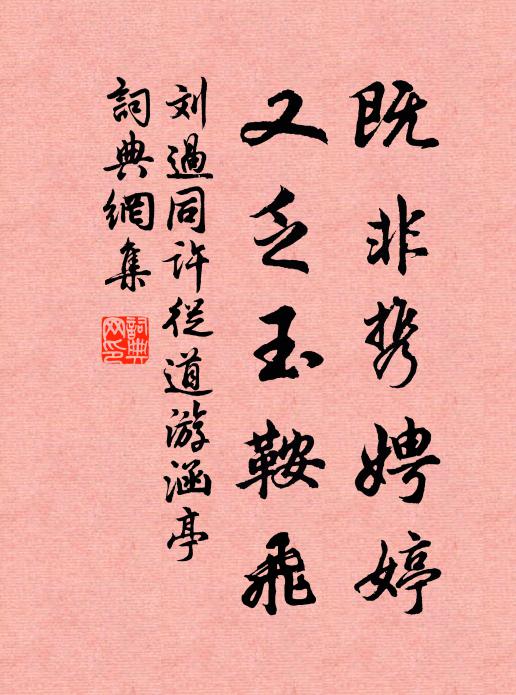 既非携娉婷
又乏玉鞍飛
刘過同許從道游涵亭
詞典網集
詞典網印